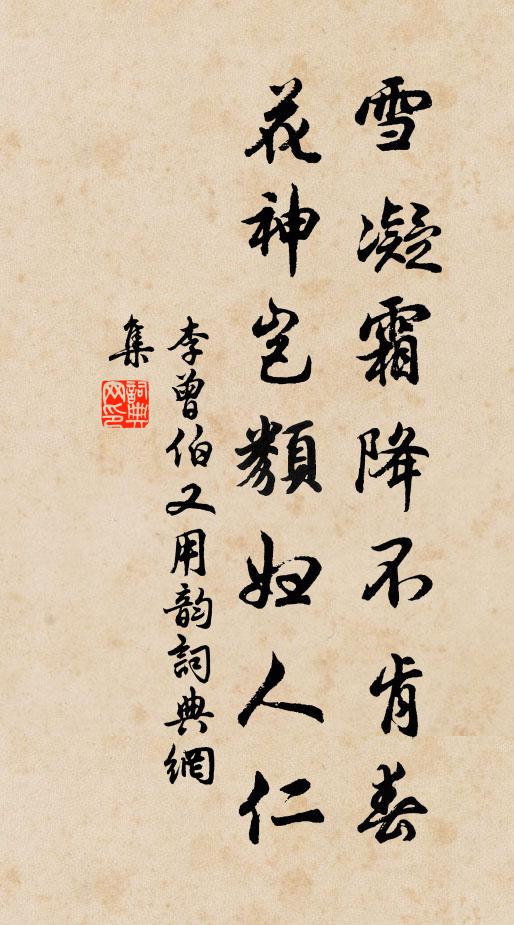 雪凝霜降不肯春
花神岂類妇人仁
李曾伯又用韵詞典網
集
詞典
网印